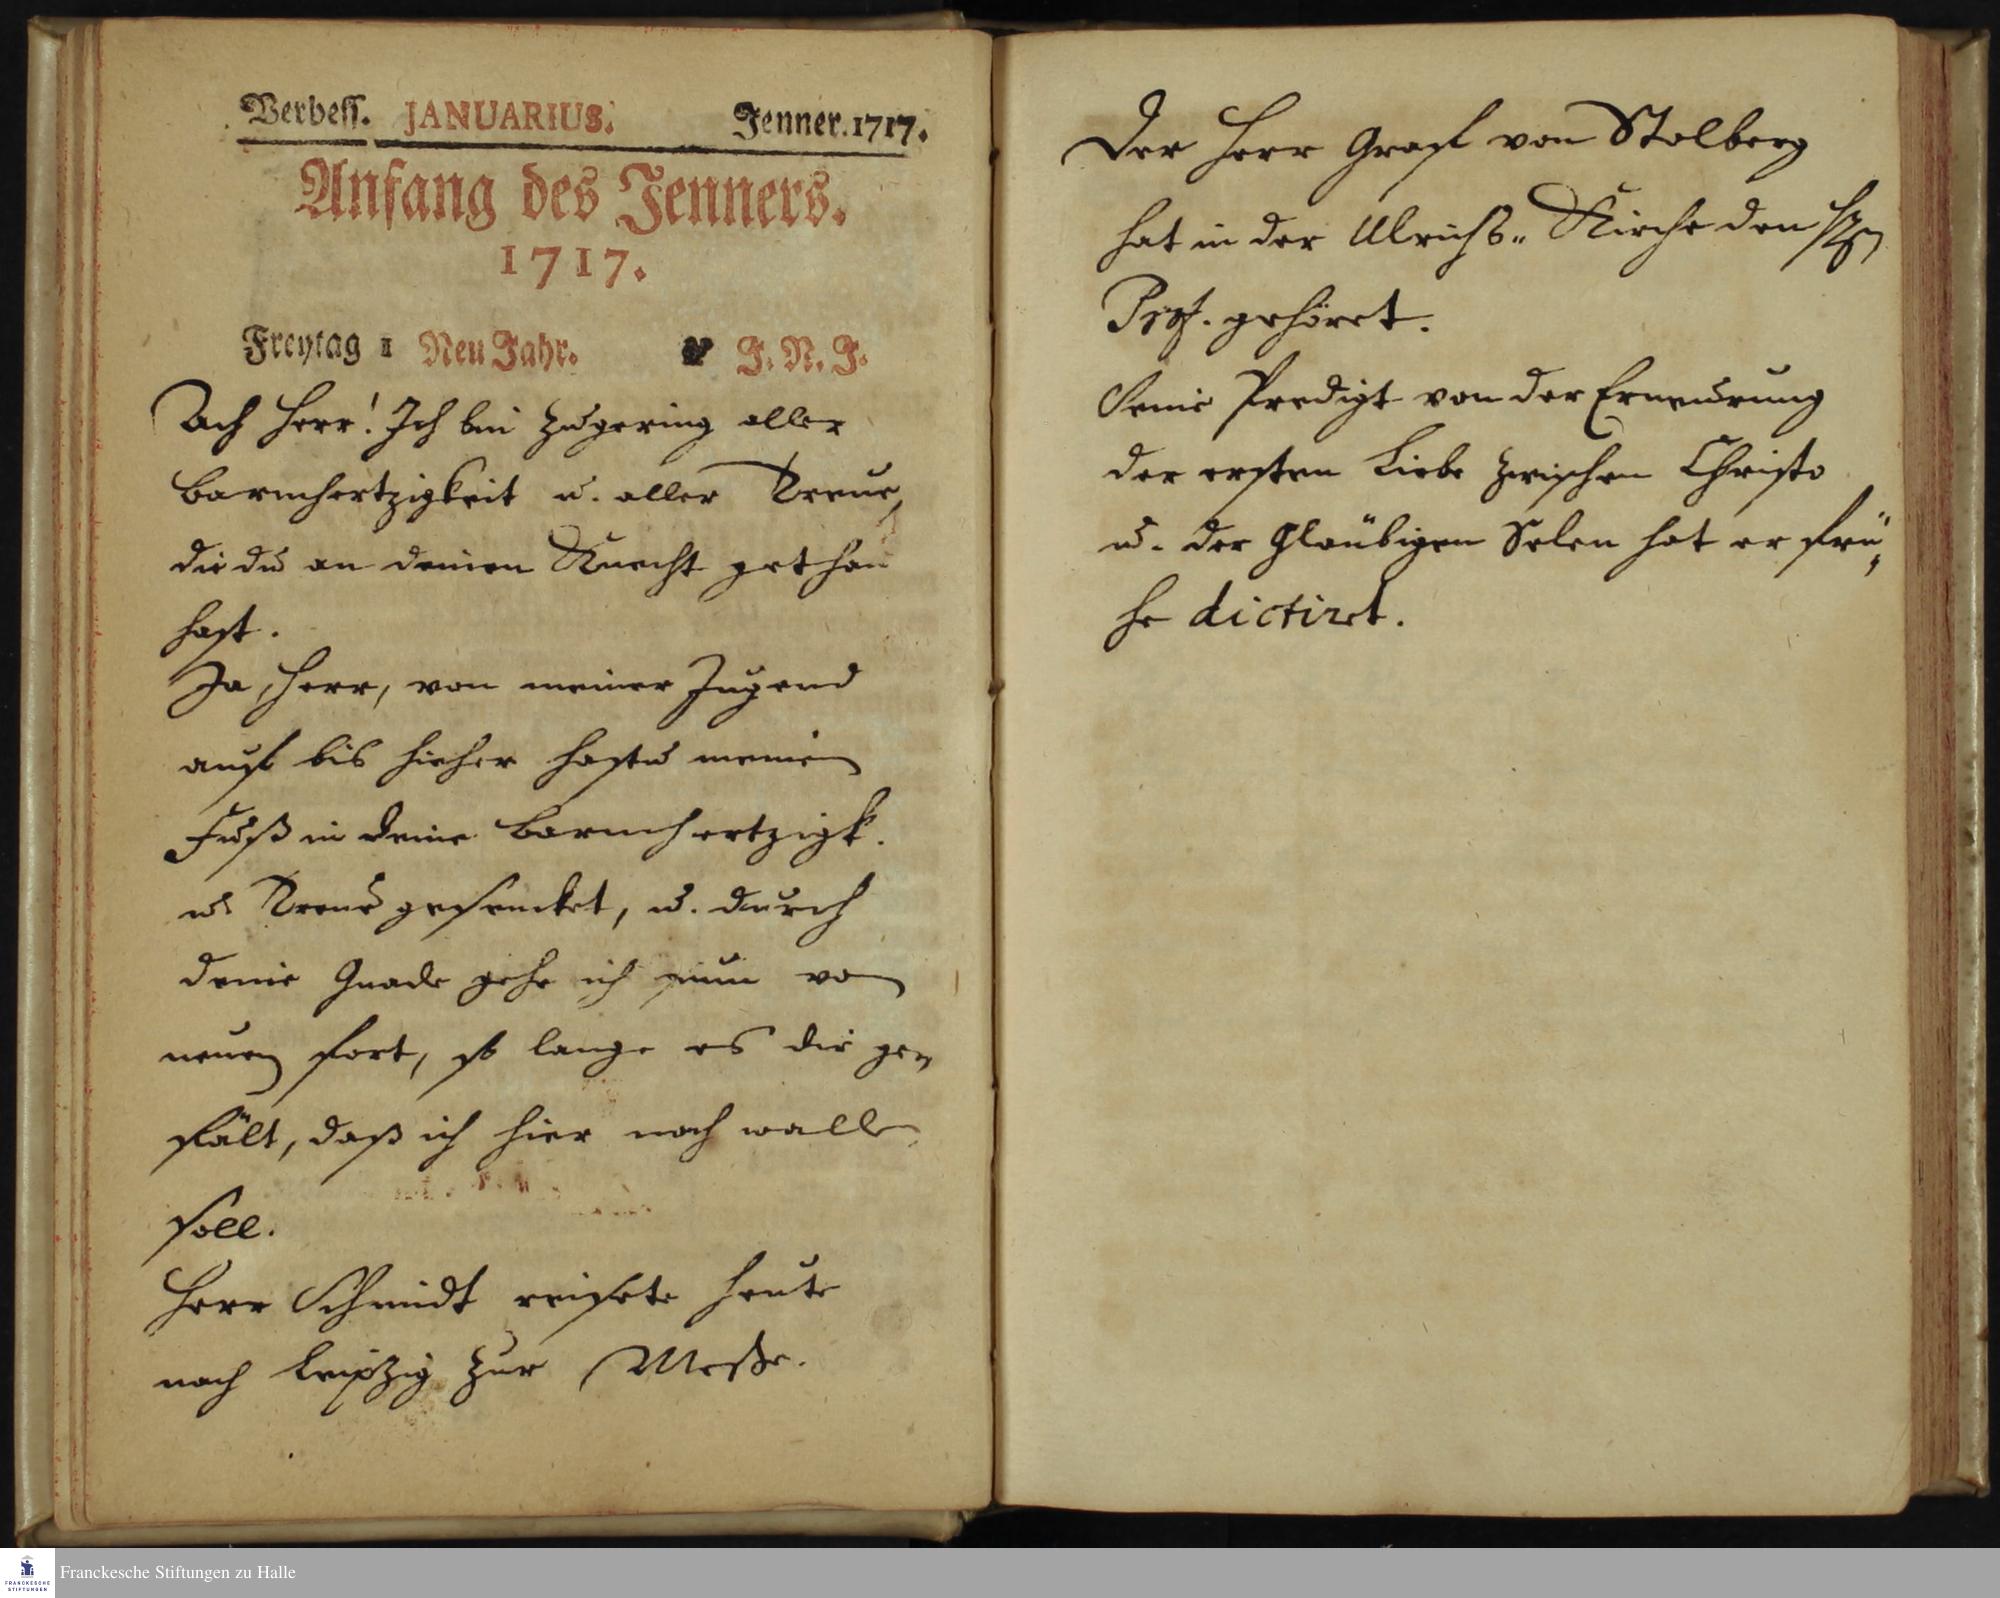 Verbess. JANUARIUS. Jenner. 1717.
Anfang des Jenners.
1717.
Freytag 1 Neu Jahr. J. N. J.
Ach Herr! Ich bin zu gering aller
Barmhertzigkeit u. aller Treue,
die du an deinen Knecht gethan
hast.
Ja, Herr, von meiner Jugend
auf bis hieher hastu meinen
Fuß in deine Barmhertzigk.
u. Treue gesencket, u. durch
deine Gnade gehe ich nun von
neuen fort, so lange es dir ge-
fält, daß ich hier noch wallen
soll.
Herr Schmidt reisete heute
nach Leipzig zur Messe.
Der Herr Graf von Stolberg
hat in der Ulrichs-Kirche den
Prof. gehöret.
Seine Predigt von der Erneurung
der ersten Liebe zwischen Christo
u. der gläubigen Selen hat er frü-
he dictiret.
FRANCKESCHE
STIFTUNGEN
Franckesche Stiftungen zu Halle